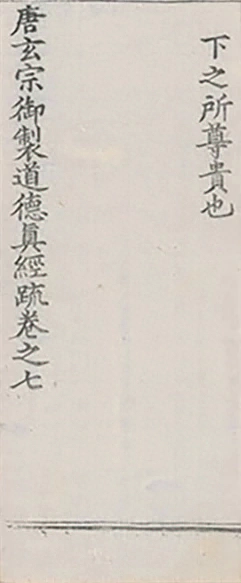 下之所尊貴也
唐玄宗御製道德真經疏卷之七